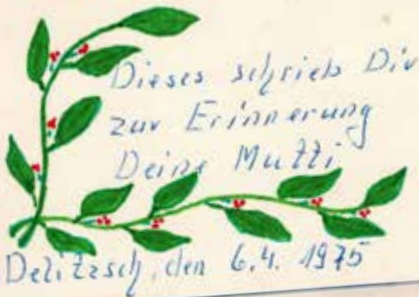 Dieses schrieb Dir
zur Erinnerung
Deine Mutti
Delitzsch, den 6.4. 1975